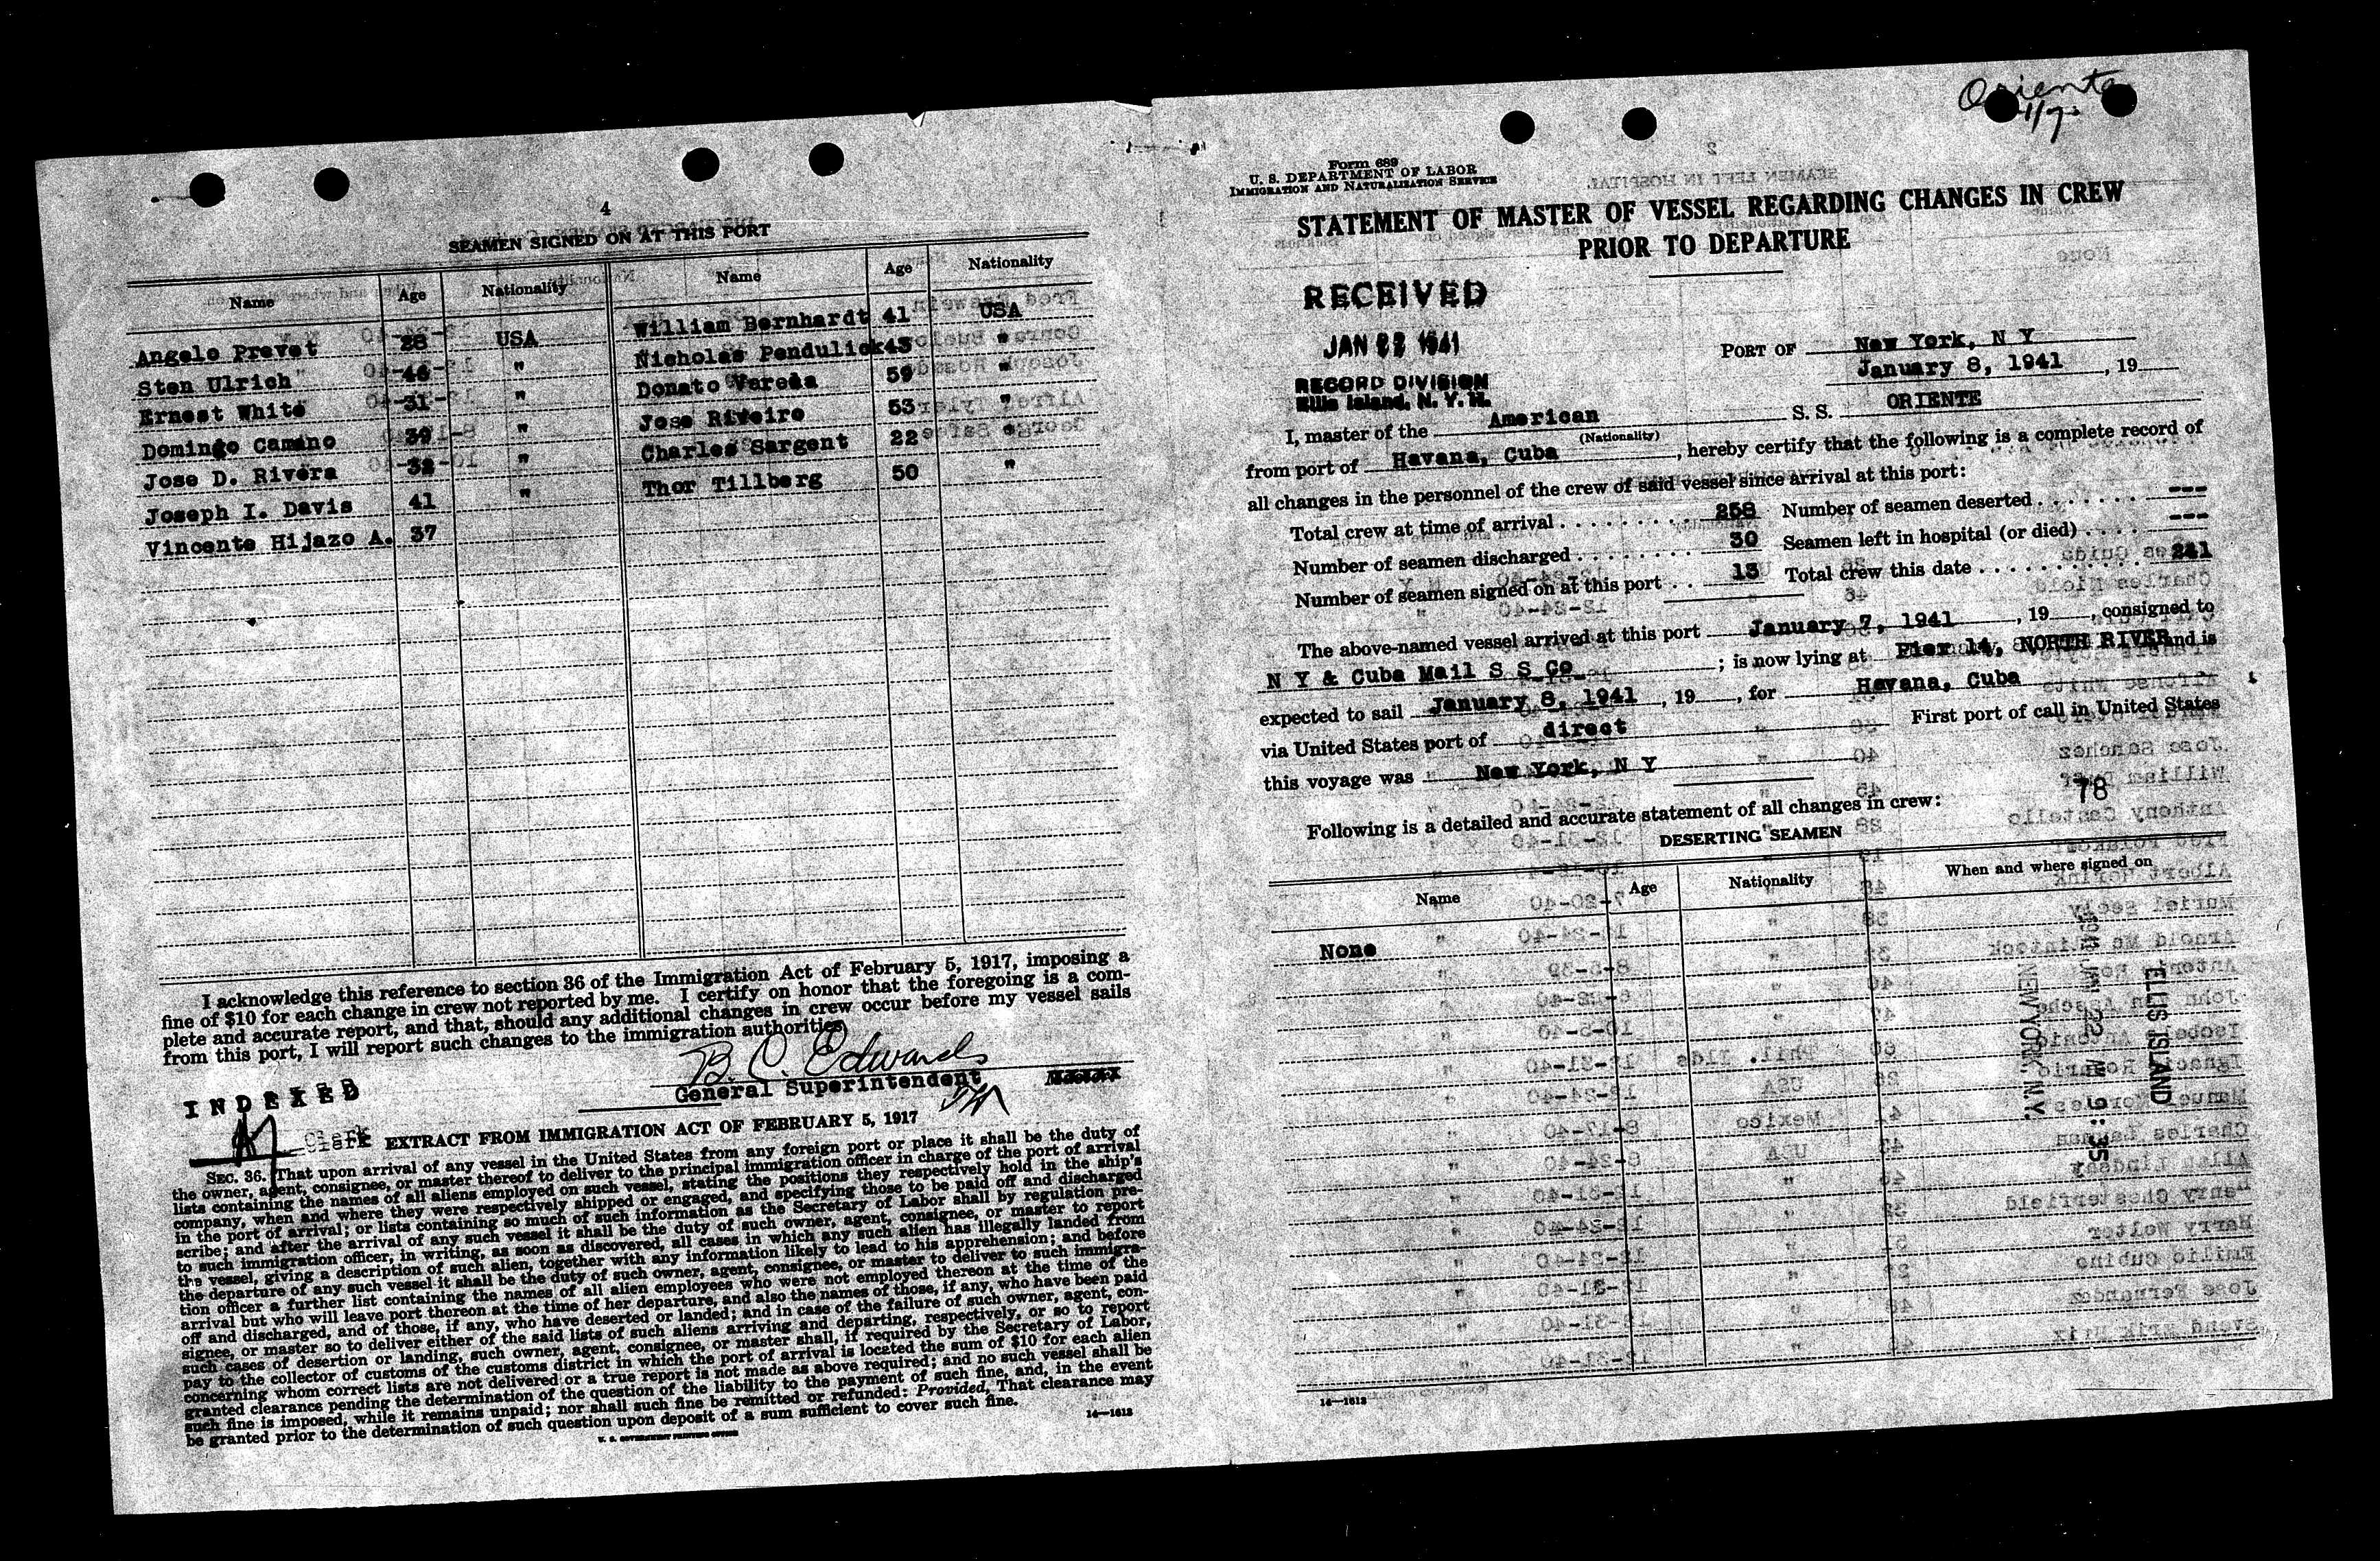 4
SEAMEN SIGNED ON AT THIS PORT
Name Age Nationality Name Age Nationality
Angelo Prevet 28 USA William Bernhardt 41 USA
Sten Ulrich 46 " Nicholas Pendulick 43 "
Ernest White 31 " Donato Vareda 59 "
Domingo Camano 39 " Jose Riveiro 53 "
Jose D. Rivera 32 " Charles Sargent 22 "
Joseph I. Davis 41 " Thor Tillberg 50 "
Vincente Hijazo A. 37
I acknowledge this reference to section 36 of the Immigration Act of February 5, 1917, imposing a
fine of $10 for each change in crew not reported by me. I certify on honor that the foregoing is a com-
plete and accurate report, and that, should any additional changes in crew occur before my vessel sails
from this port, I will report such changes to the immigration authorities.
B. C. Edwards
General Superintendent
INDEXED
Clerk
EXTRACT FROM IMMIGRATION ACT OF FEBRUARY 5, 1917
SEC. 36. That upon arrival of any vessel in the United States from any foreign port or place it shall be the duty of
the owner, agent, consignee, or master thereof to deliver to the principal immigration officer in charge of the port of arrival
lists containing the names of all aliens employed on such vessel, stating the positions they respectively hold in the ship's
company, when and where they were respectively shipped or engaged, and specifying those to be paid off and discharged
in the port of arrival; or lists containing so much of such information as the Secretary of Labor shall by regulation pre-
scribe; and after the arrival of any such vessel it shall be the duty of such owner, agent, consignee, or master to report
to such immigration officer, in writing, as soon as discovered, all cases in which any such alien has illegally landed from
the vessel, giving a description of such alien, together with any information likely to lead to his apprehension; and before
the departure of any such vessel it shall be the duty of such owner, agent, consignee, or master to deliver to such immigra-
tion officer a further list containing the names of all alien employees who were not employed thereon at the time of the
arrival but who will leave port thereon at the time of her departure, and also the names of those, if any, who have been paid
off and discharged, and of those, if any, who have deserted or landed; and in case of the failure of such owner, agent, con-
signee, or master so to deliver either of the said lists of such aliens arriving and departing, respectively, or so to report
such cases of desertion or landing, such owner, agent, consignee, or master shall, if required by the Secretary of Labor,
pay to the collector of customs of the customs district in which the port of arrival is located the sum of $10 for each alien
concerning whom correct lists are not delivered or a true report is not made as above required; and no such vessel shall be
granted clearance pending the determination of the question of the liability to the payment of such fine, and, in the event
such fine is imposed, while it remains unpaid; nor shall such fine be remitted or refunded: Provided, That clearance may
be granted prior to the determination of such question upon deposit of a sum sufficient to cover such fine.
14—1613
U. S. GOVERNMENT PRINTING OFFICE
Oriente
1/7
Form 689
U. S. DEPARTMENT OF LABOR
IMMIGRATION AND NATURALIZATION SERVICE
STATEMENT OF MASTER OF VESSEL REGARDING CHANGES IN CREW
PRIOR TO DEPARTURE
RECEIVED
JAN 22 1941
RECORD DIVISION
Ellis Island, N. Y. H.
PORT OF New York, N Y
January 8, 1941, 19
I, master of the American S. S. ORIENTE
(Nationality)
from port of Havana, Cuba, hereby certify that the following is a complete record of
all changes in the personnel of the crew of said vessel since arrival at this port:
Total crew at time of arrival 258 Number of seamen deserted ---
Number of seamen discharged 30 Seamen left in hospital (or died) ---
Number of seamen signed on at this port 13 Total crew this date 241
The above-named vessel arrived at this port January 7, 1941, 19, consigned to
N Y & Cuba Mail S S Co; is now lying at Pier 14, NORTH RIVER and is
expected to sail January 8, 1941, 19, for Havana, Cuba
via United States port of direct First port of call in United States
this voyage was New York, N Y
78
Following is a detailed and accurate statement of all changes in crew:
DESERTING SEAMEN
Name Age Nationality When and where signed on
None
1941 JAN 22 AM 9:35
ELLIS ISLAND
NEW YORK, N.Y.
14—1613